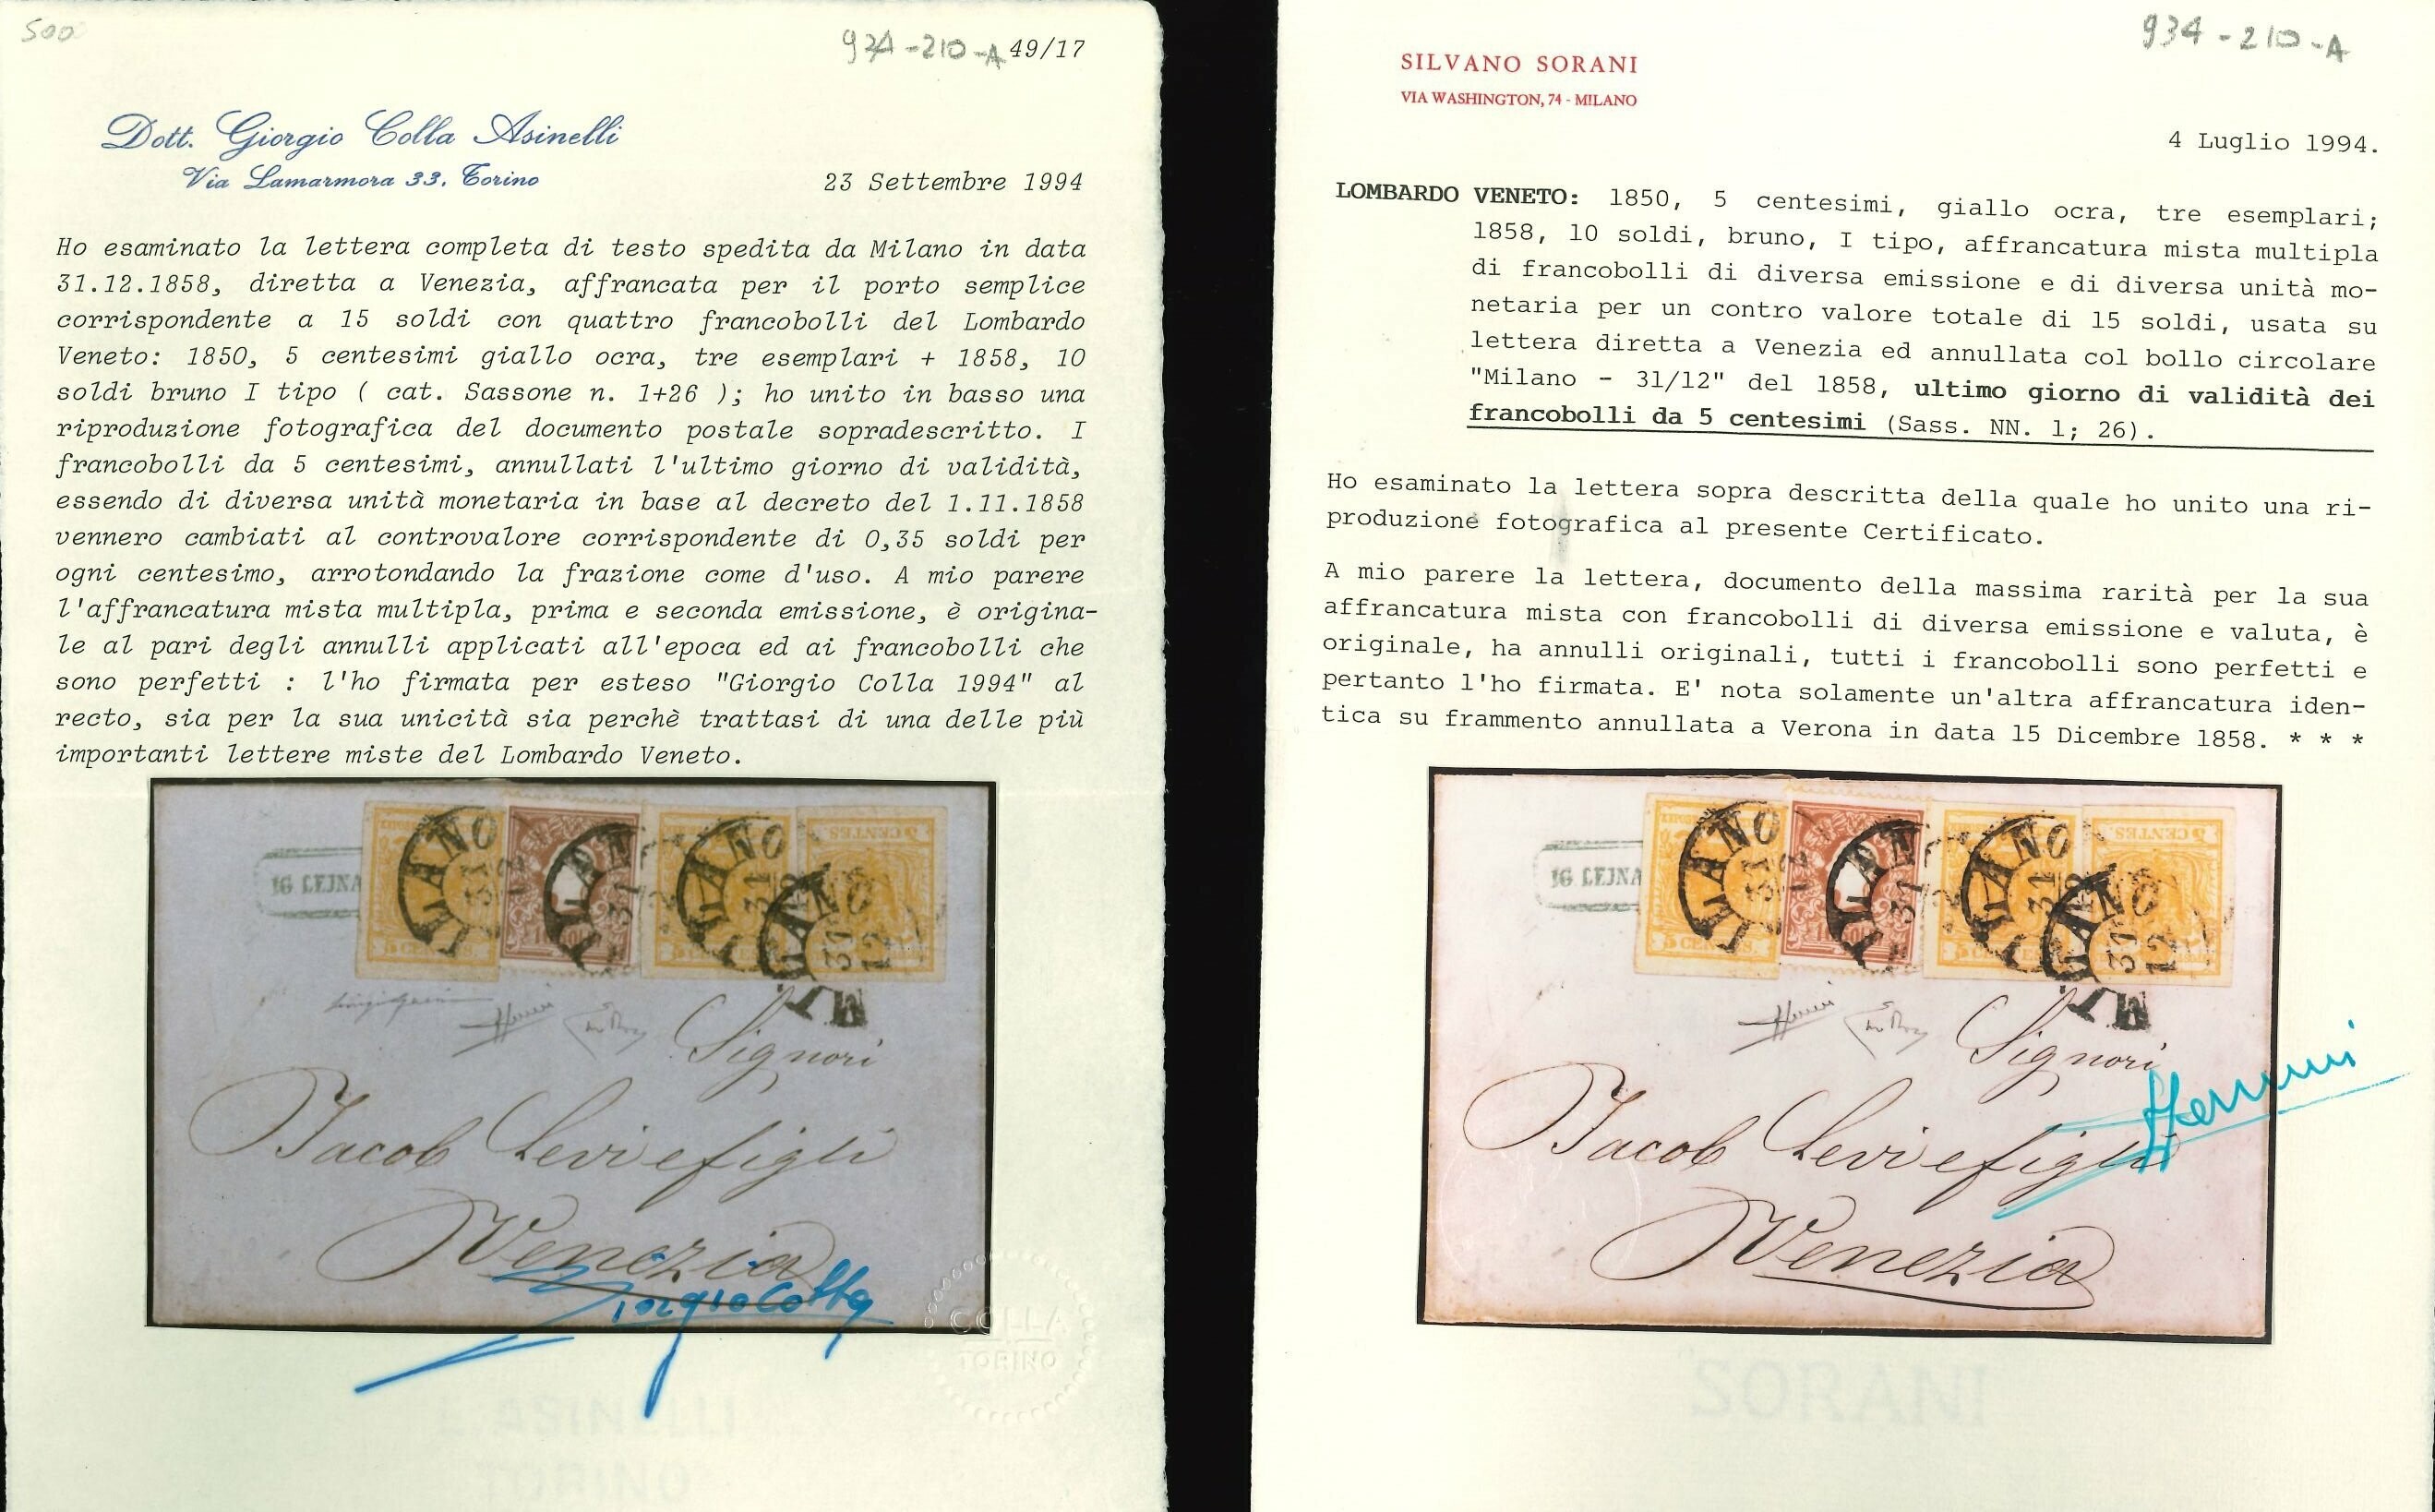 500
934-210-A 49/17
Dott. Giorgio Colla Asinelli
Via Lamarmora 33. Torino
23 Settembre 1994
Ho esaminato la lettera completa di testo spedita da Milano in data
31.12.1858, diretta a Venezia, affrancata per il porto semplice
corrispondente a 15 soldi con quattro francobolli del Lombardo
Veneto: 1850, 5 centesimi giallo ocra, tre esemplari + 1858, 10
soldi bruno I tipo ( cat. Sassone n. 1+26 ); ho unito in basso una
riproduzione fotografica del documento postale sopradescritto. I
francobolli da 5 centesimi, annullati l'ultimo giorno di validità,
essendo di diversa unità monetaria in base al decreto del 1.11.1858
vennero cambiati al controvalore corrispondente di 0,35 soldi per
ogni centesimo, arrotondando la frazione come d'uso. A mio parere
l'affrancatura mista multipla, prima e seconda emissione, è origina-
le al pari degli annulli applicati all'epoca ed ai francobolli che
sono perfetti : l'ho firmata per esteso "Giorgio Colla 1994" al
recto, sia per la sua unicità sia perchè trattasi di una delle più
importanti lettere miste del Lombardo Veneto.
IG LEJNA
MILANO
31
12
MILANO
31
12
MILANO
31
12
MILANO
31
12
5 CENTES.
5 CENTES.
5 CENTES.
Signori
Jacob Levi e figli
Venezia
Giorgio Colla
COLLA
TORINO
E ASINELLI
TORINO
934-210-A
SILVANO SORANI
VIA WASHINGTON, 74 - MILANO
4 Luglio 1994.
LOMBARDO VENETO: 1850, 5 centesimi, giallo ocra, tre esemplari;
1858, 10 soldi, bruno, I tipo, affrancatura mista multipla
di francobolli di diversa emissione e di diversa unità mo-
netaria per un contro valore totale di 15 soldi, usata su
lettera diretta a Venezia ed annullata col bollo circolare
"Milano - 31/12" del 1858, ultimo giorno di validità dei
francobolli da 5 centesimi (Sass. NN. 1; 26).
Ho esaminato la lettera sopra descritta della quale ho unito una ri-
produzione fotografica al presente Certificato.
A mio parere la lettera, documento della massima rarità per la sua
affrancatura mista con francobolli di diversa emissione e valuta, è
originale, ha annulli originali, tutti i francobolli sono perfetti e
pertanto l'ho firmata. E' nota solamente un'altra affrancatura iden-
tica su frammento annullata a Verona in data 15 Dicembre 1858. * * *
IG LEJNA
MILANO
31
12
MILANO
31
12
MILANO
31
12
MILANO
31
12
5 CENTES.
5 CENTES.
5 CENTES.
Signori
Jacob Levi e figli
Venezia
SORANI